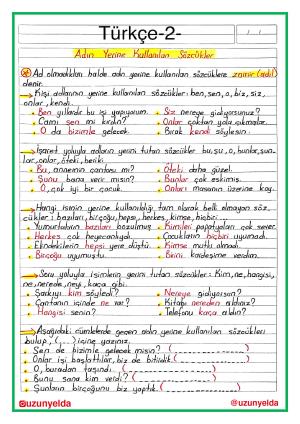 Türkçe-2-
Adın Yerine Kullanılan Sözcükler
Ad olmadıkları halde adın yerine kullanılan sözcüklere zamir (adıl)
denir.
→Kişi adlarının yerine kullanılan sözcükler: ben, sen, o, biz, siz,
onlar, kendi.
• Ben yıllardır bu işi yapıyorum. • Siz nereye gidiyorsunuz?
• Camı sen mi kırdın? • Onlar çoktan yola çıkmışlar.
• O da bizimle gelecek. • Bırak kendi söylesin.
→İşaret yoluyla adların yerini tutan sözcükler bu, şu, o, bunlar, şun-
lar, onlar, öteki, beriki.
• Bu, annemin çantası mı? • Öteki daha güzel.
• Şunu bana verir misin? • Bunlar çok eskimiş.
• O, çok iyi bir çocuk. • Onları masanın üzerine koy.
→Hangi ismin yerine kullanıldığı tam olarak belli olmayan söz,
cükler: bazıları, birçoğu, hepsi, herkes, kimse, hiçbiri...
• Yumurtaların bazıları bozulmuş. • Kimileri papatyaları çok sever.
• Herkes çok heyecanlıydı. • Çocukların hiçbiri uyumadı.
• Elindekilerin hepsi yere düştü. • Kimse mutlu olmadı.
• Birçoğu uyumuştu. • Birini kaldesime verdim.
→Soru yoluyla isimlerin yerini tutan sözcükler: Kim, ne, hangisi,
ne, nerede, neyi, kaça gibi.
• Şarkıyı kim söyledi? • Nereye gidiyorsun?
• Çantanın içinde ne var? • Kitabı nereden aldınız?
• Hangisi senin? • Telefonu kaça aldın?
→Aşağıdaki cümlelerde geçen adın yerine kullanılan sözcükleri
bulup, ( ) içine yazınız.
• Sen de bizimle gelecek misin? ( )
• Onlar işi başlattılar, biz de bitirdik. ( )
• O, buradan taşındı. ( )
• Bunu sana kim verdi? ( )
• Şunların birçoğunu biz yaptık. ( )
@uzunyelda @uzunyelda